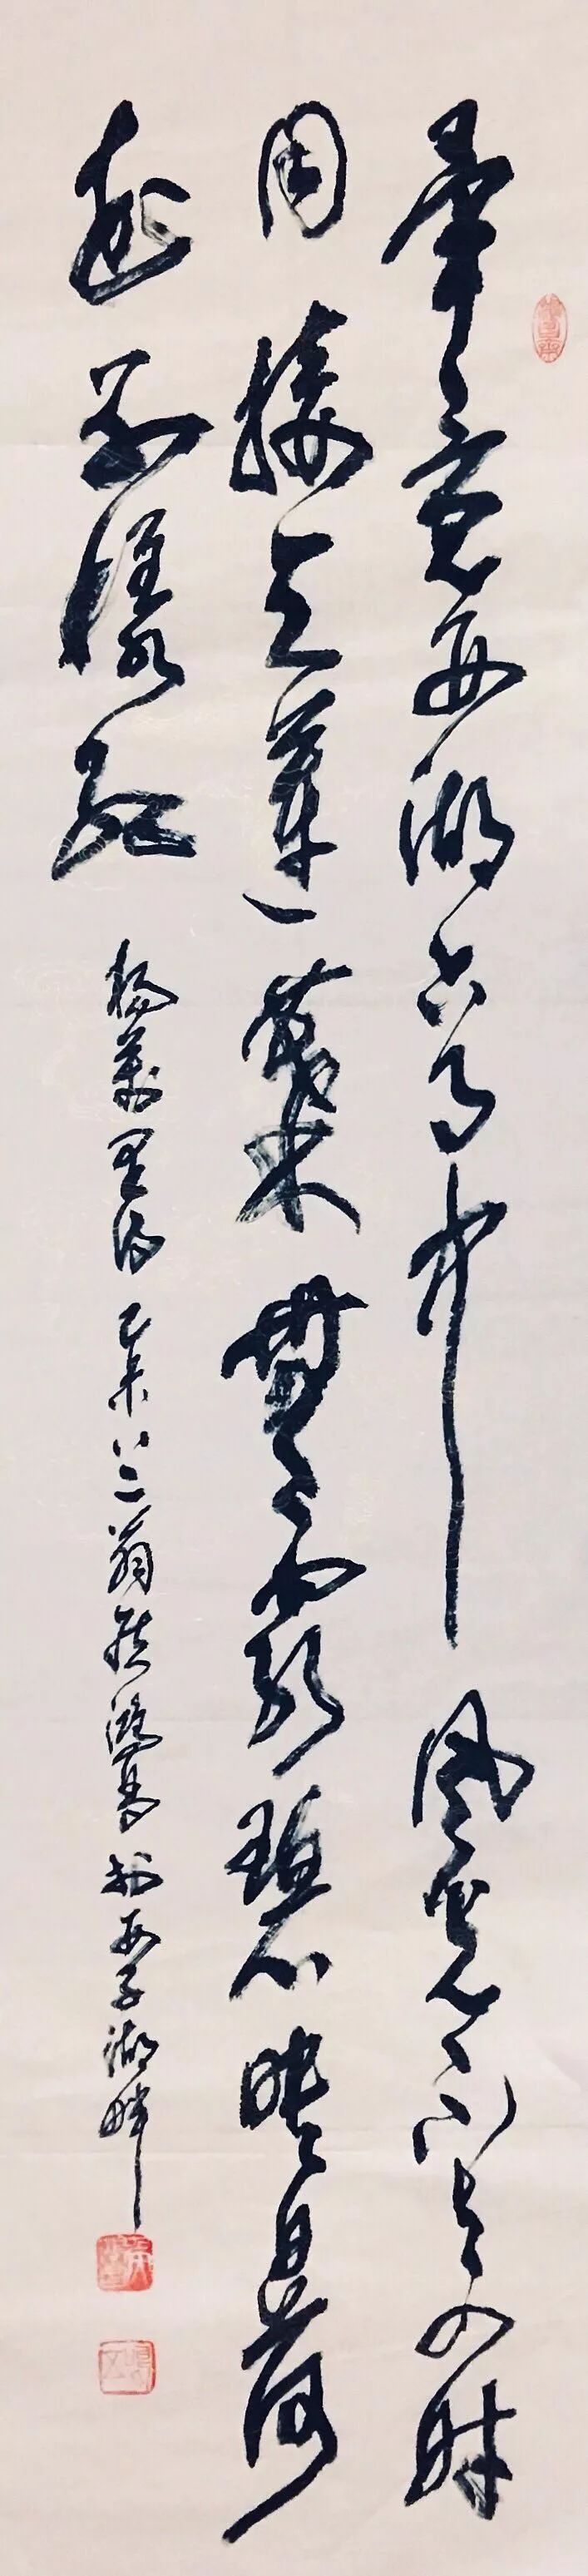 畢竟西湖六月中風光不與四時
同接天蓮葉無窮碧映日荷
花別樣紅 楊萬里詩 乙未八二翁 於西子湖畔